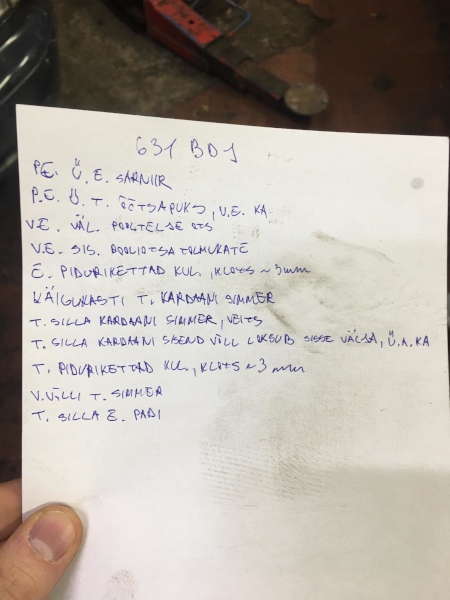 631 BDJ
P.E. Ü. E. SARNIIR
P.E. Ü. T. ÕÕTSAPUKS, V.E. KA
V.E. VÄL. POOLTELJE OTS
V.E. SIS. POOLIOTSA TOLMUKATE
E. PIDURIKETTAD KUL, KLOTS ~3mm
KÄIGUKASTI T. KARDAANI SIMMER
T. SILLA KARDAANI SIMMER, VEITS
T. SILLA KARDAANI SISEND VÕLL LOKSUB SISSE VÄLJA, Ü.A. KA
T. PIDURIKETTAD KUL, KLOTS ~3mm
V.VÕLLI T. SIMMER
T. SILLA E. PADI